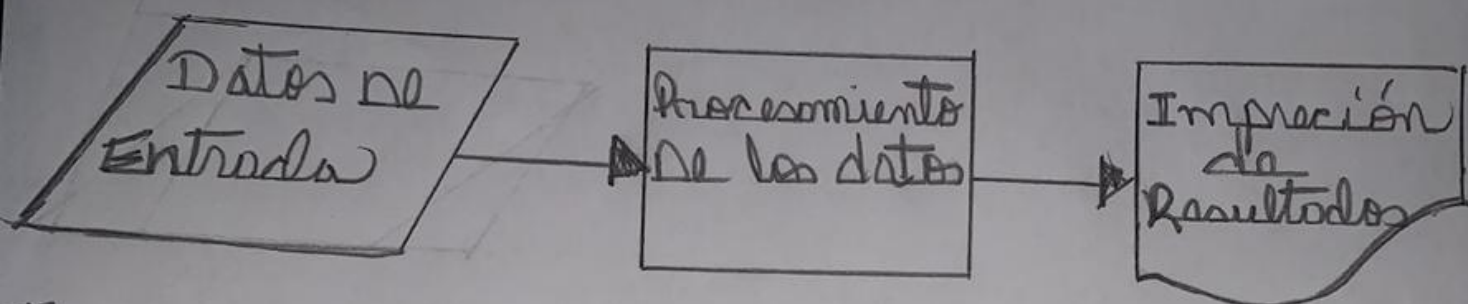 Datos De
Entrada
Procesamiento
De los datos
Impreción
de
Resultados